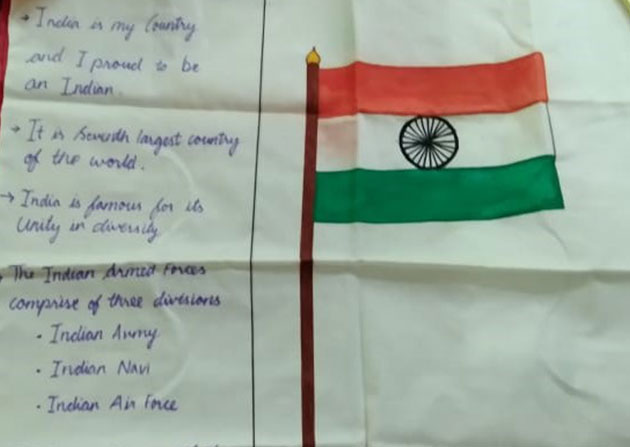 → India is my Country
and I proud to be
an Indian.
→ It is Seventh largest country
of the world.
→ India is famous for its
Unity in diversity
→ The Indian Armed Forces
comprise of three divisions
• Indian Army
• Indian Navi
• Indian Air Force